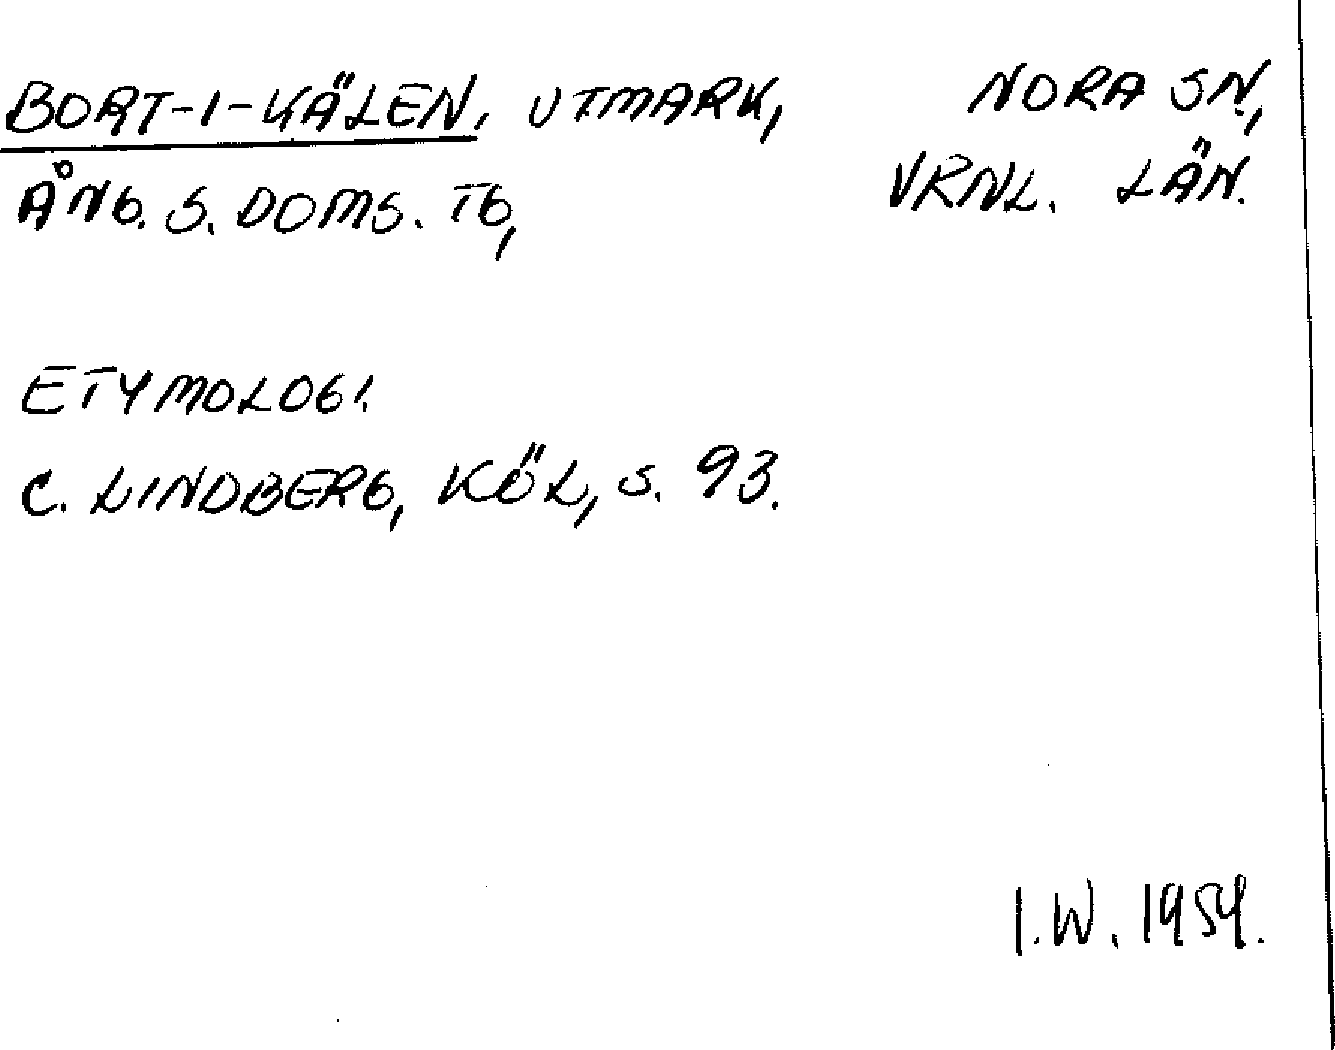 BORT-I-KÄLEN, UTMARK, NORA SN,
ÅNG. S. DOMS. TG, VRNL. LÄN.
ETYMOLOGI.
C. LINDBERG, KÖL, S. 93.
I.W. 1954.